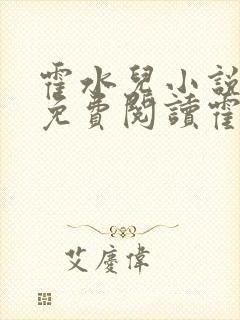 霍水兒小說
免費閱讀霍
艾慶偉